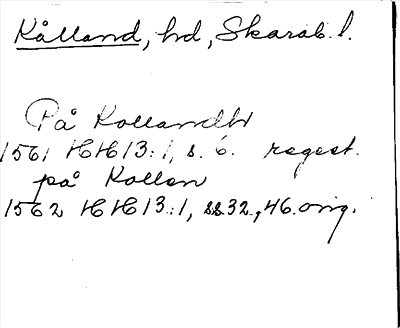 Kålland, hd, Skarab. l.
På Kollandh
1561 HH 13:1, s. 6. regest.
på Kollen
1562 HH 13:1, ss 32, 46. orig.